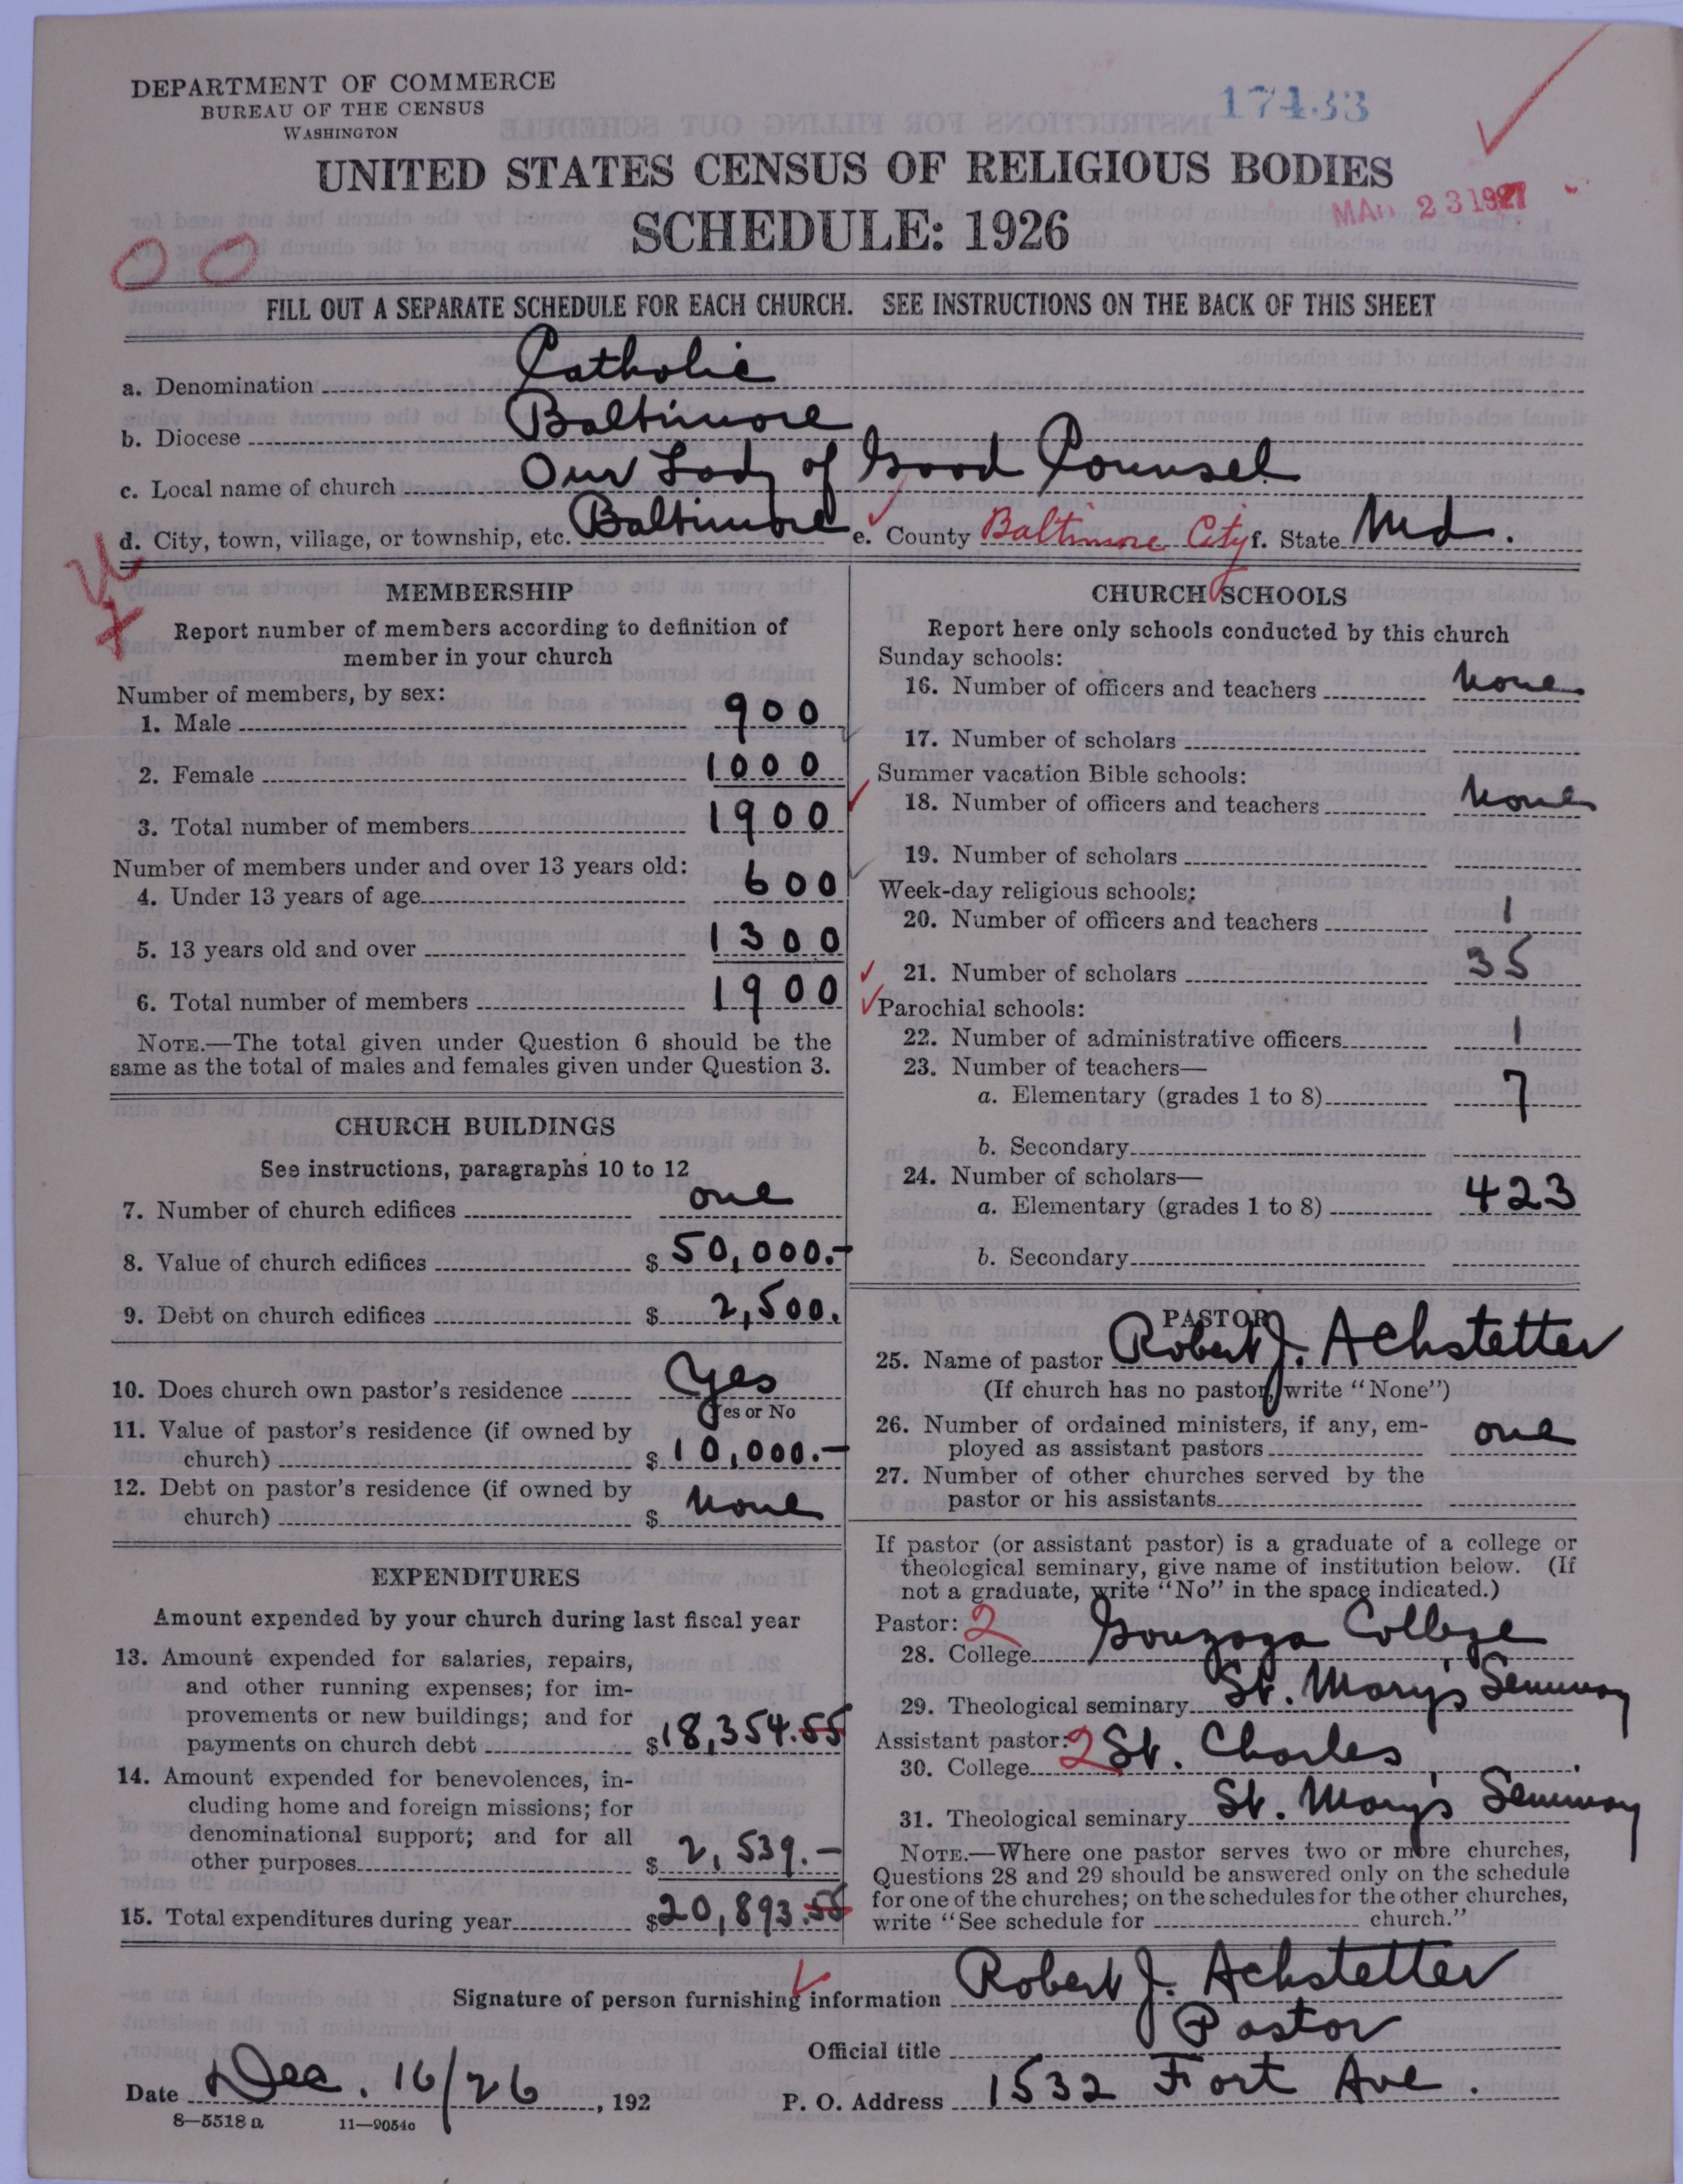 DEPARTMENT OF COMMERCE
BUREAU OF THE CENSUS
WASHINGTON
17433
UNITED STATES CENSUS OF RELIGIOUS BODIES
SCHEDULE: 1926
MAR 23 1927
00
FILL OUT A SEPARATE SCHEDULE FOR EACH CHURCH. SEE INSTRUCTIONS ON THE BACK OF THIS SHEET
a. Denomination Catholic
b. Diocese Baltimore
c. Local name of church Our Lady of Good Counsel
d. City, town, village, or township, etc. Baltimore e. County Baltimore City f. State Md.
MEMBERSHIP
Report number of members according to definition of
member in your church
Number of members, by sex:
1. Male 900
2. Female 1000
3. Total number of members 1900
Number of members under and over 13 years old:
4. Under 13 years of age 600
5. 13 years old and over 1300
6. Total number of members 1900
NOTE.—The total given under Question 6 should be the
same as the total of males and females given under Question 3.
CHURCH BUILDINGS
See instructions, paragraphs 10 to 12
7. Number of church edifices one
8. Value of church edifices $ 50,000.-
9. Debt on church edifices $ 2,500.
10. Does church own pastor's residence Yes
Yes or No
11. Value of pastor's residence (if owned by
church) $ 10,000.-
12. Debt on pastor's residence (if owned by
church) $ none
EXPENDITURES
Amount expended by your church during last fiscal year
13. Amount expended for salaries, repairs,
and other running expenses; for im-
provements or new buildings; and for
payments on church debt $ 18,354.55
14. Amount expended for benevolences, in-
cluding home and foreign missions; for
denominational support; and for all
other purposes $ 2,539.-
15. Total expenditures during year $ 20,893.55
CHURCH SCHOOLS
Report here only schools conducted by this church
Sunday schools:
16. Number of officers and teachers none
17. Number of scholars
Summer vacation Bible schools:
18. Number of officers and teachers none
19. Number of scholars
Week-day religious schools:
20. Number of officers and teachers 1
21. Number of scholars 35
Parochial schools:
22. Number of administrative officers 1
23. Number of teachers—
a. Elementary (grades 1 to 8) 7
b. Secondary
24. Number of scholars—
a. Elementary (grades 1 to 8) 423
b. Secondary
PASTOR
25. Name of pastor Robert J. Achstetter
(If church has no pastor, write "None")
26. Number of ordained ministers, if any, em-
ployed as assistant pastors one
27. Number of other churches served by the
pastor or his assistants
If pastor (or assistant pastor) is a graduate of a college or
theological seminary, give name of institution below. (If
not a graduate, write "No" in the space indicated.)
Pastor: 2
28. College Gonzaga College
29. Theological seminary St. Mary's Seminary
Assistant pastor: 2
30. College St. Charles
31. Theological seminary St. Mary's Seminary
NOTE.—Where one pastor serves two or more churches,
Questions 28 and 29 should be answered only on the schedule
for one of the churches; on the schedules for the other churches,
write "See schedule for church."
Signature of person furnishing information Robert J. Achstetter
Official title Pastor
Date Dec. 16/26, 192 P. O. Address 1532 Fort Ave.
8—5518 a 11—9054c